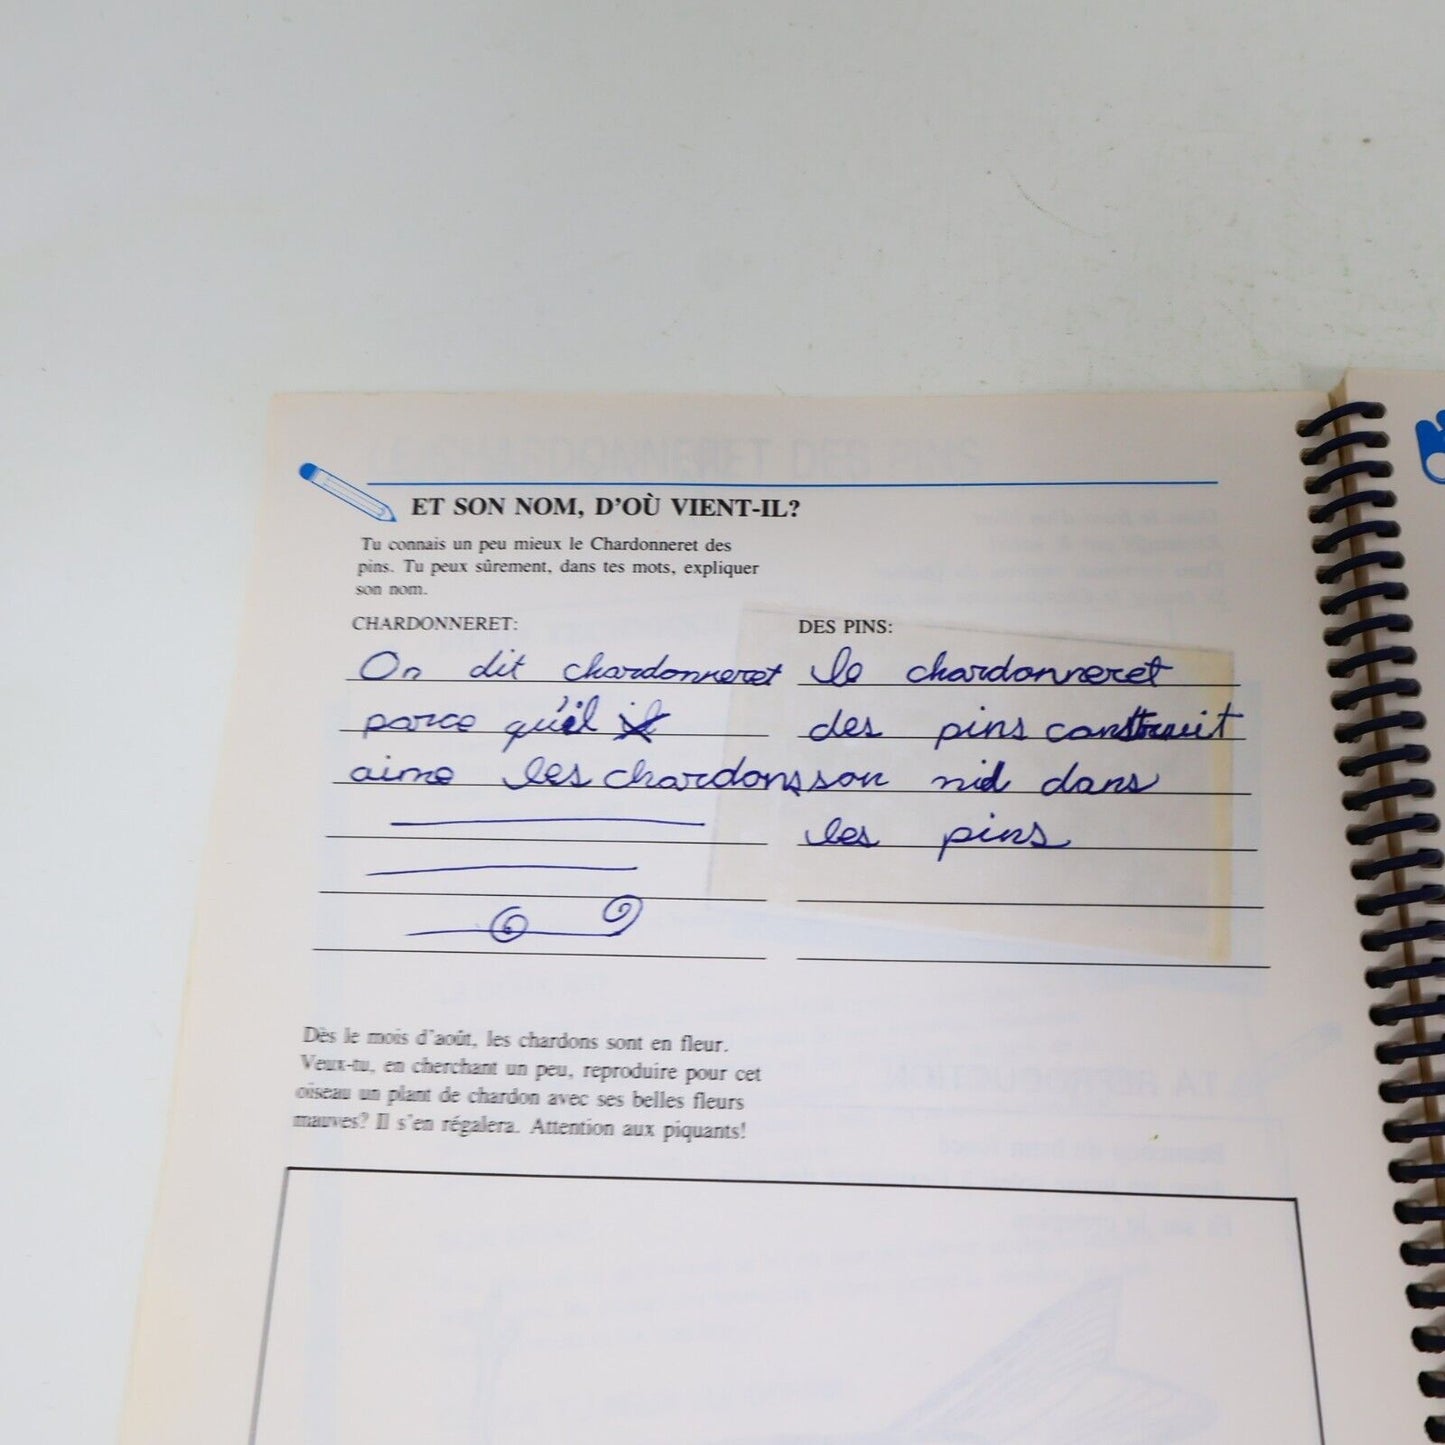 ET SON NOM, D'OÙ VIENT-IL?
Tu connais un peu mieux le Chardonneret des
pins. Tu peux sûrement, dans tes mots, expliquer
son nom.
CHARDONNERET:
On dit chardonneret
parce qu'il
aime les chardons
DES PINS:
le chardonneret
des pins construit
son nid dans
les pins
Dès le mois d'août, les chardons sont en fleur.
Veux-tu, en cherchant un peu, reproduire pour cet
oiseau un plant de chardon avec ses belles fleurs
mauves? Il s'en régalera. Attention aux piquants!